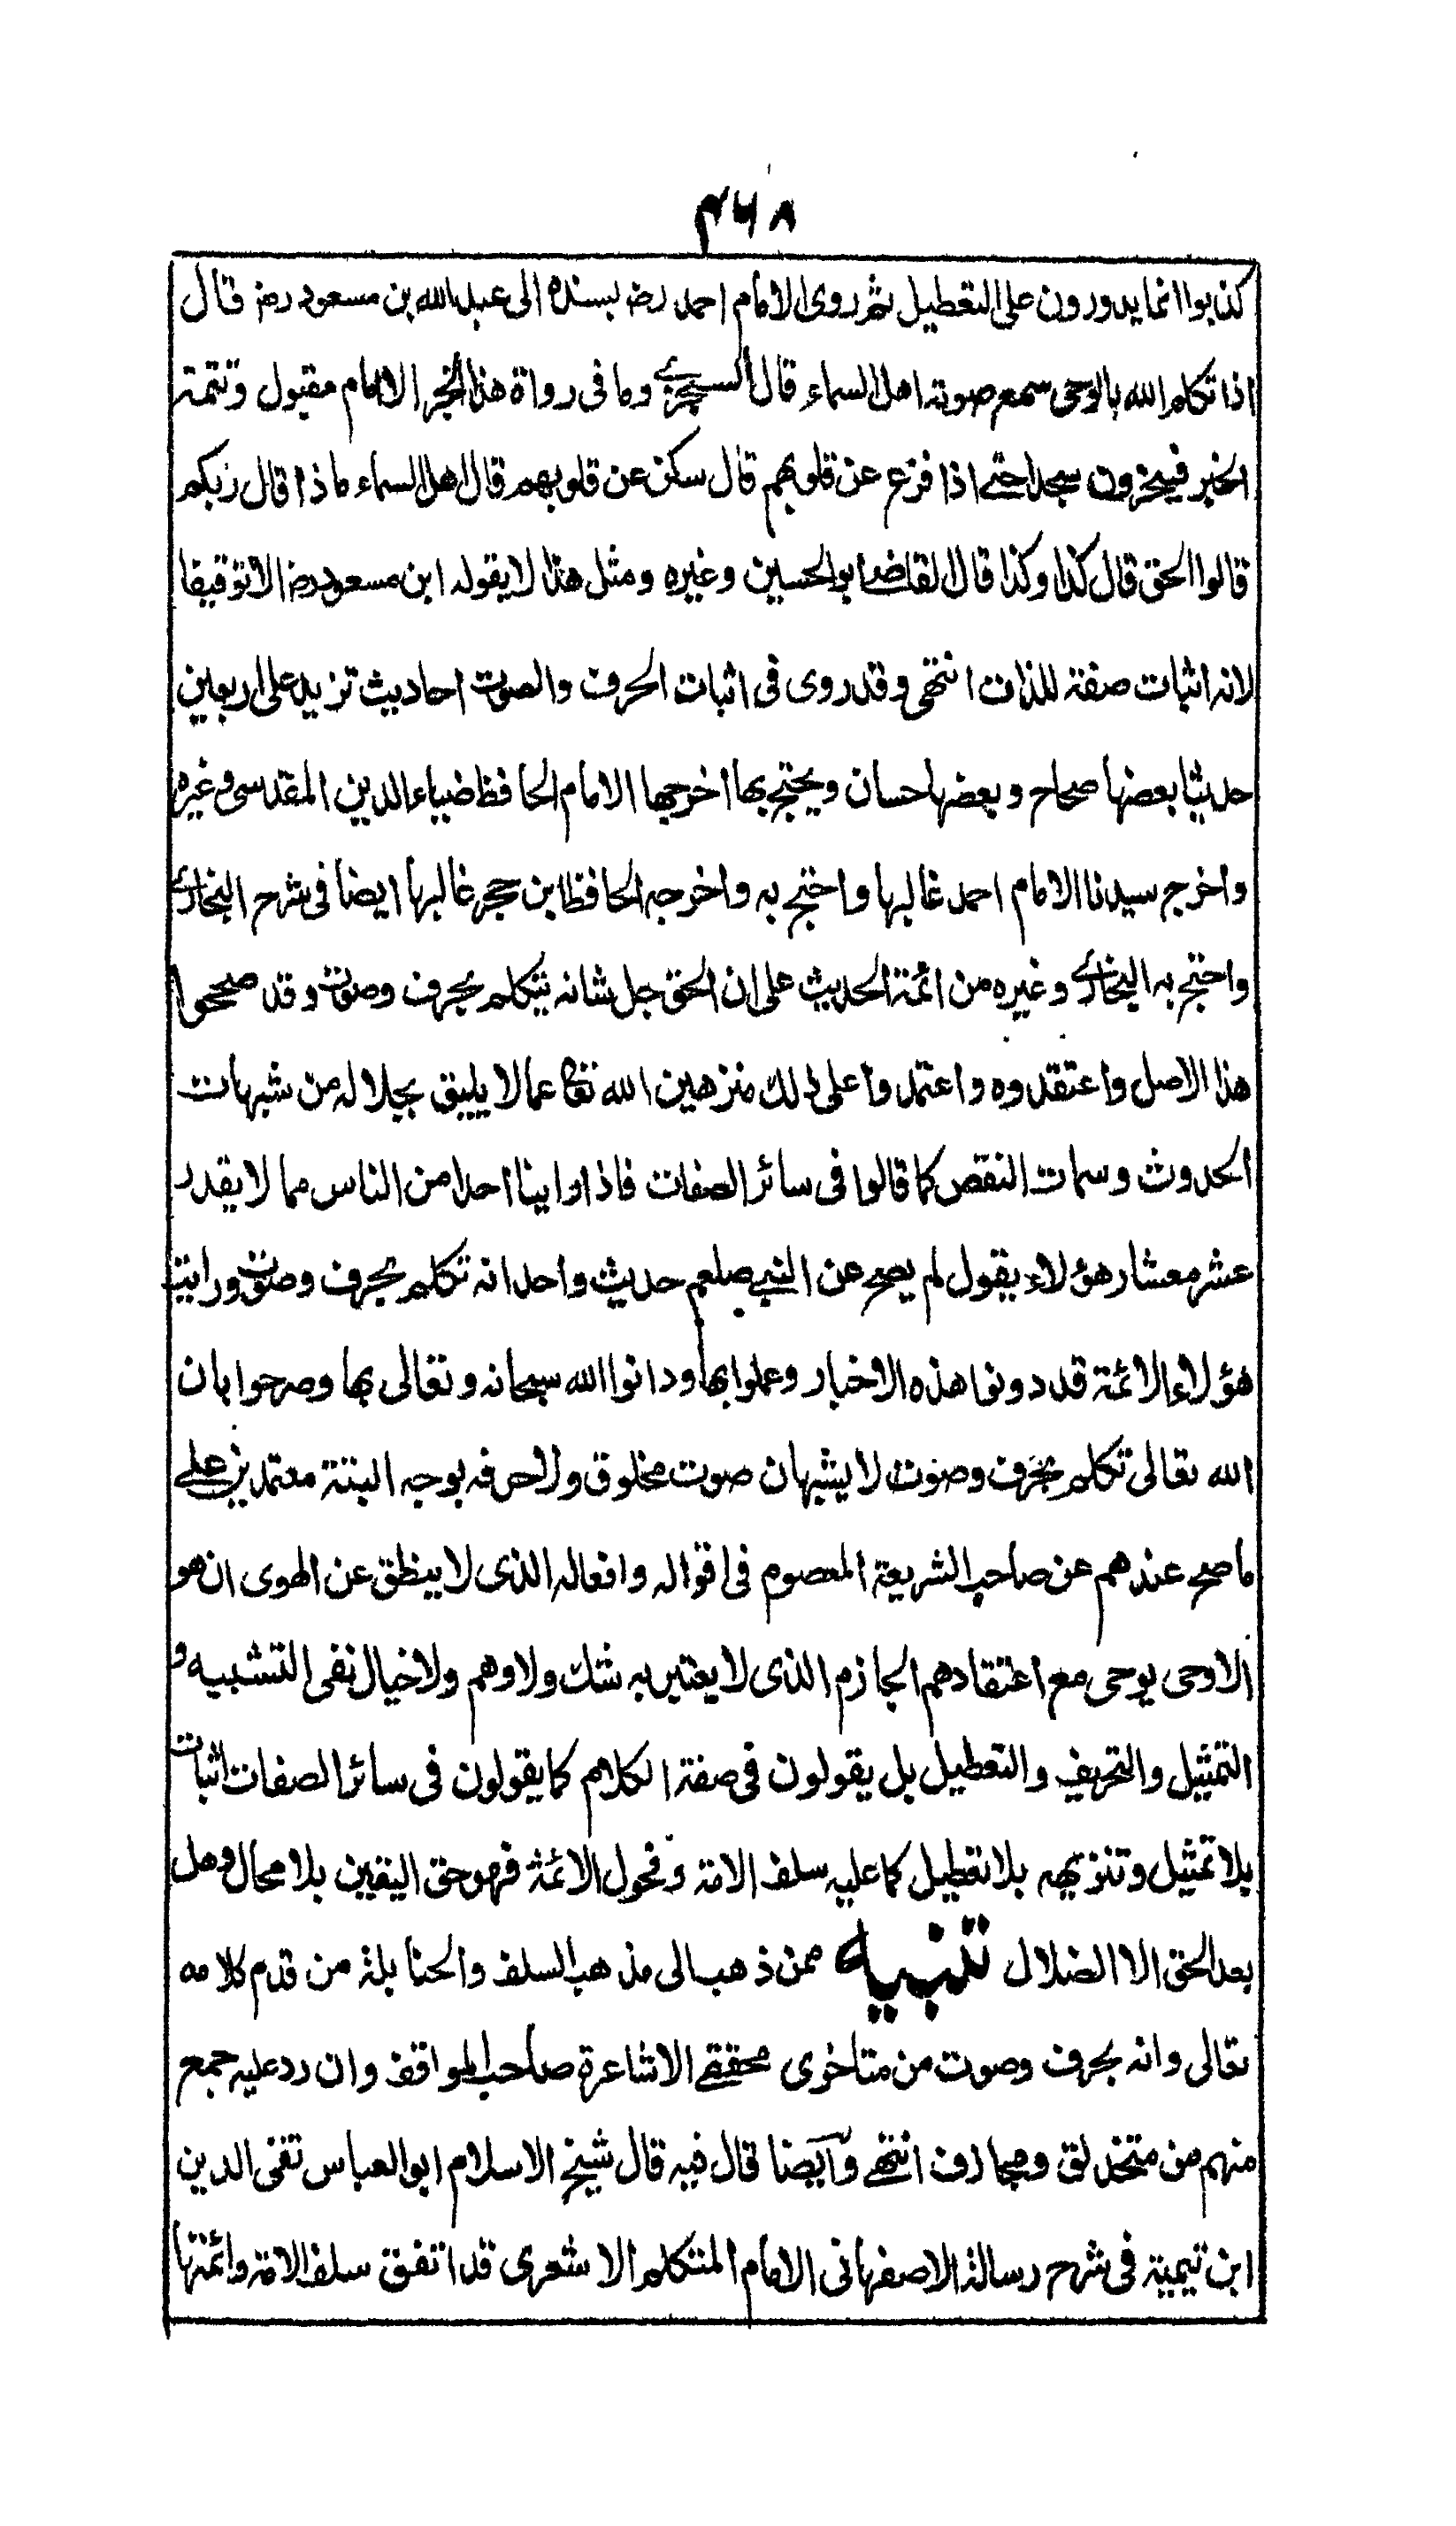 ۴۶۸
كذبوا انما يدورون على التعطيل ثم روى الامام احمد رضـ بسنده الى عبد الله بن مسعود رضـ قال
اذا تكلم الله بالوحى سمع صوته اهل السماء قال السجزے وما فى رواة هذا الخبر الا امام مقبول وتتمة
الخبر فيخرون سجدا حتے اذا فزع عن قلوبهم قال سكن عن قلوبهم قال اهل السماء ماذا قال ربكم
قالوا الحق قال كذا وكذا قال القاضے ابو الحسين وغيره ومثل هذا لا يقوله ابن مسعود رضـ الا توقيفا
لانه اثبات صفة للذات انتهى وقد روى فى اثبات الحرف والصوت احاديث تزيد على اربعين
حديثا بعضها صحاح وبعضها حسان ويحتج بها اخرجها الامام الحافظ ضياء الدين المقدسى وغيره
واخرج سيدنا الامام احمد غالبها واحتج به واخرجه الحافظ ابن حجر غالبها ايضا فى شرح البخارے
واحتج به البخارے وغيره من ائمة الحديث على ان الحق جل شانه يتكلم بحرف وصوت وقد صححوا
هذا الاصل واعتقدوه واعتمدوا على ذلك منزهين الله تعا عما لا يليق بجلاله من شبهات
الحدوث وسمات النقص كما قالوا فى سائر الصفات فاذا راينا احدا من الناس مما لا يقدر
عشر معشار هؤلاء يقول لم يصح عن النبے صلعم حديث واحد انه تكلم بحرف وصوت ورايت
هؤلاء الائمة قد دونوا هذه الاخبار وعملوا بها ودانوا الله سبحانه وتعالى بها وصرحوا بان
الله تعالى تكلم بحرف وصوت لا يشبهان صوت مخلوق ولا حرفه بوجه البتة معتمدين علے
ما صح عندهم عن صاحب الشريعة المعصوم فى اقواله وافعاله الذى لا ينطق عن الهوى ان هو
الا وحى يوحى مع اعتقادهم الجازم الذى لا يعتريه شك ولا وهم ولا خيال نفى التشبيه و
التمثيل والتحريف والتعطيل بل يقولون فى صفة الكلام كما يقولون فى سائر الصفات اثبات
بلا تمثيل وتنزيه بلا تعطيل كما عليه سلف الامة وفحول الائمة فهو حق اليقين بلا محال وهل
بعد الحق الا الضلال تنبيه ممن ذهب الى مذهب السلف والحنابلة من قدم كلامه
تعالى وانه بحرف وصوت من متاخرى محققے الاشاعرة صاحب المواقف وان رد عليه جمع
منهم من متحذلق ومجازف انتهے وايضا قال فيه قال شيخ الاسلام ابو العباس تقى الدين
ابن تيمية فى شرح رسالة الاصفهانى الامام المتكلم الاشعرى قد اتفق سلف الامة وائمتها